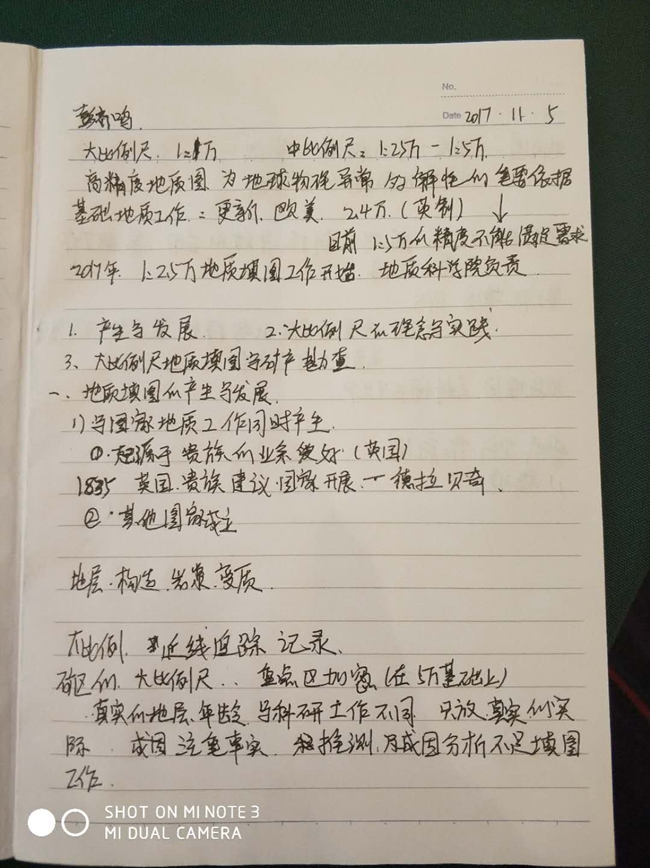 No.
Date 2017 · 11 · 5
彭齐鸣
大比例尺 1:1万 中比例尺: 1:25万 - 1:5万
高精度地质图 为地球物理异常的解释的重要依据
基础地质工作: 更新 欧美 2.4万 (英制) ↓
目前 1:5万的精度不能满足需求
2017年 1:2.5万地质填图工作开始 地质科学院负责
1. 产生与发展 2. 大比例尺的理念与实践
3、大比例尺地质填图与矿产勘查
一、地质填图的产生与发展
1) 与国家地质工作同时产生
①起源于贵族的业余爱好 (英国)
1835 英国 贵族 建议 国家 开展 — 德拉贝奇
② 其他国家成立
地层 · 构造 岩浆 变质
大比例 追踪 记录
矿区的 大比例尺 .. 重点区加密 (在5万基础上)
真实的地层、年龄 与科研工作不同 只放真实的实
际 成因 注重事实 推测、及成因分析不是填图
工作.
SHOT ON MI NOTE 3
MI DUAL CAMERA